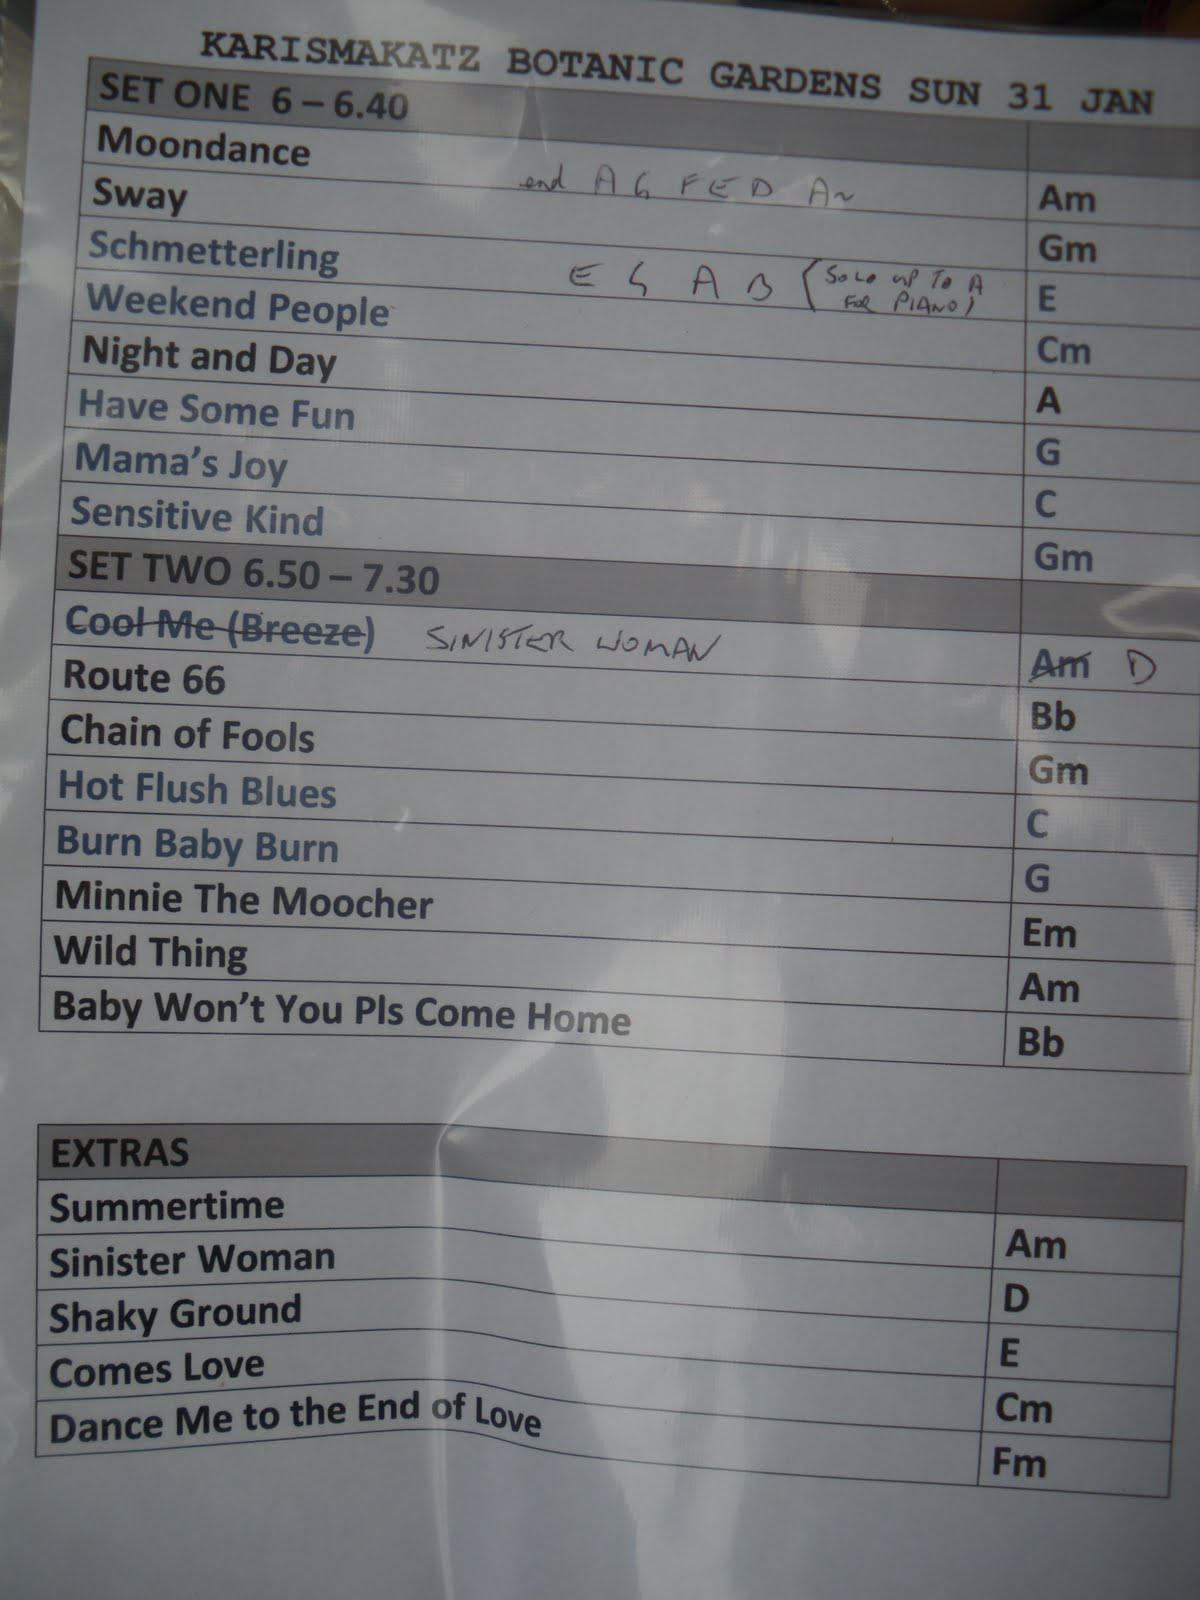 KARISMAKATZ BOTANIC GARDENS SUN 31 JAN
SET ONE 6 – 6.40
Moondance end A G F E D Am Am
Sway Gm
Schmetterling E G A B (SOLO UP TO A FOR PIANO) E
Weekend People Cm
Night and Day A
Have Some Fun G
Mama's Joy C
Sensitive Kind Gm
SET TWO 6.50 – 7.30
Cool Me (Breeze) SINISTER WOMAN Am D
Route 66 Bb
Chain of Fools Gm
Hot Flush Blues C
Burn Baby Burn G
Minnie The Moocher Em
Wild Thing Am
Baby Won't You Pls Come Home Bb
EXTRAS
Summertime Am
Sinister Woman D
Shaky Ground E
Comes Love Cm
Dance Me to the End of Love Fm